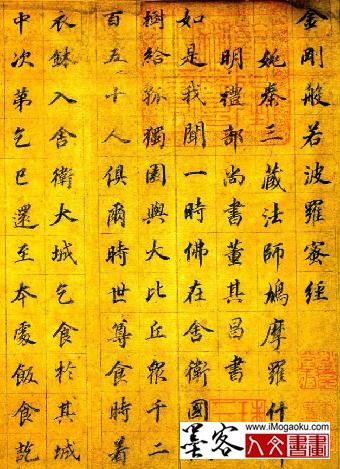 金剛般若波羅蜜經
姚秦三藏法師鳩摩羅什
明禮部尚書董其昌書
如是我聞一時佛在舍衛國
樹給孤獨園與大比丘衆千二
百五十人俱爾時世尊食時着
衣鉢入舍衛大城乞食於其城
中次第乞已還至本處飯食訖
墨客 人文書畫
www.iMogaoku.com